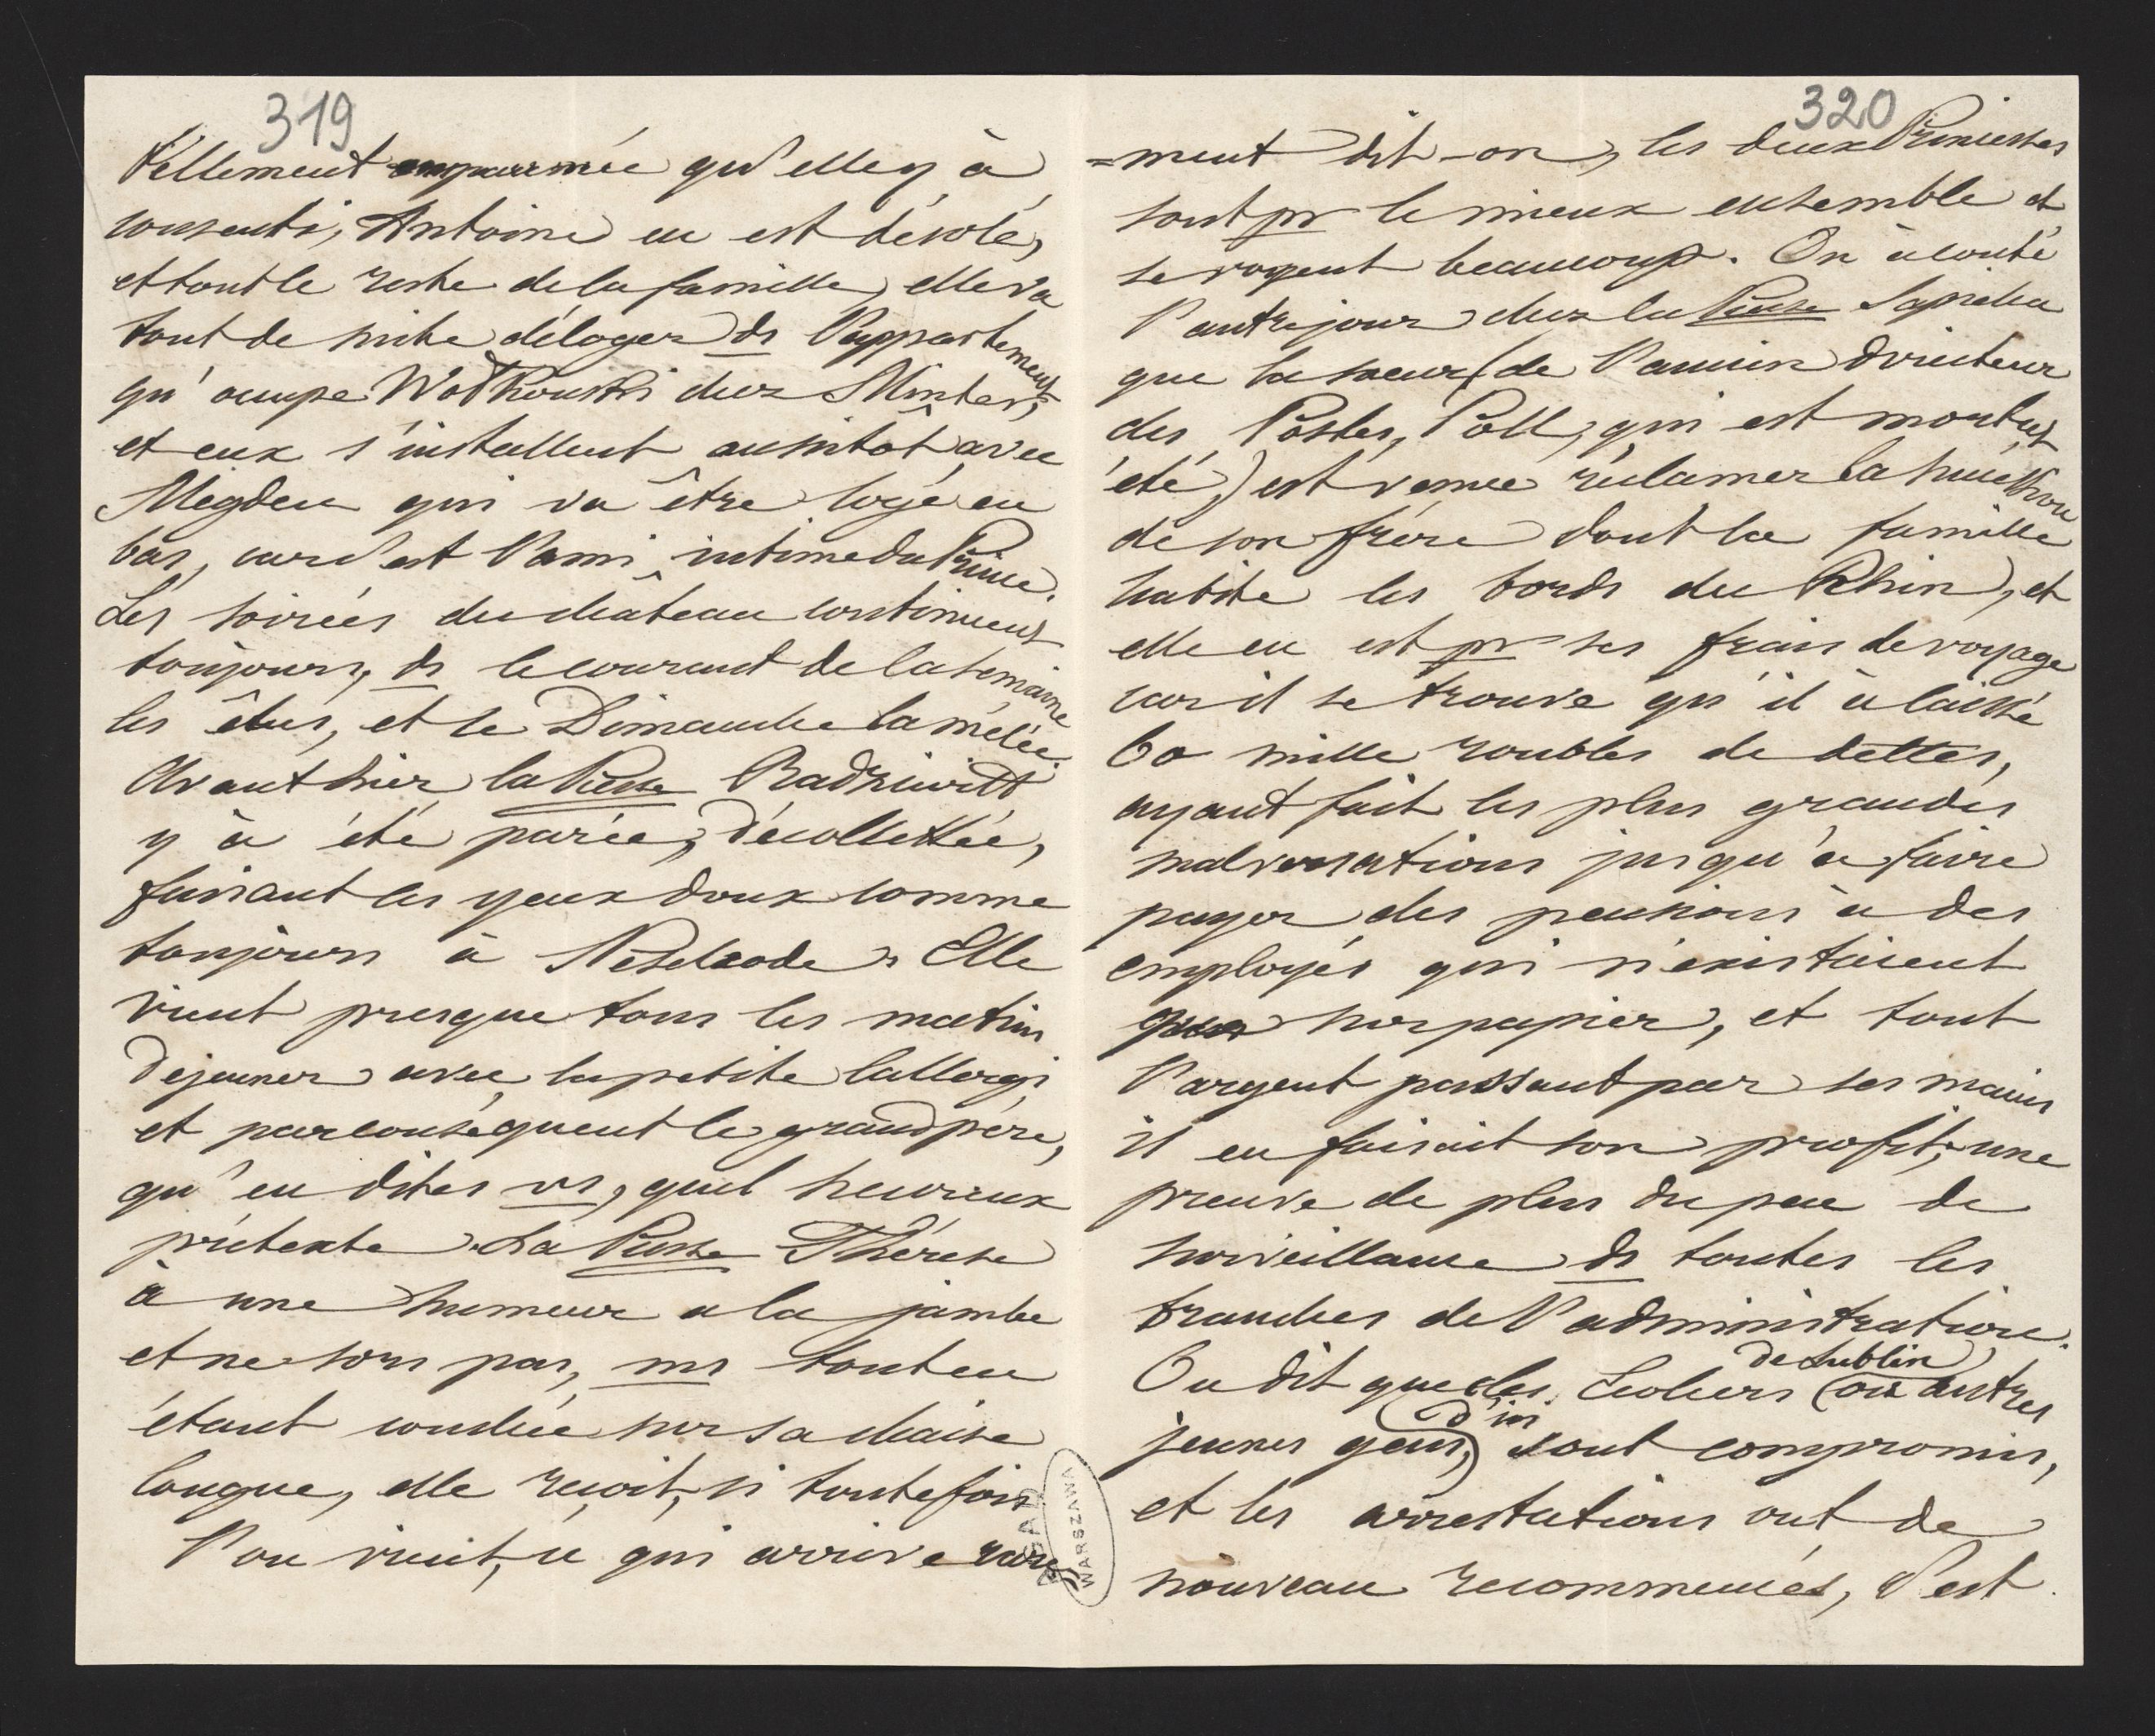 319
tellement qu'elle y à
consenti, Antoine en est désolé,
et tout le reste de la famille, elle va
tout de suite déloger ds l'appartement
qu'occupe Wołkouski chez Minter,
et eux s'installent aussitôt avec
Megden qui va être logé en
bas, car c'est l'ami intime du Prince.
Les soirées du château continuent
toujours, ds le courant de la semaine
les élus, et le Dimanche la mêlée.
Avant hier la Psse Radziwiłł
y à été parée, décollettée,
faisant les yeux doux comme
toujours à Neselrode. Elle
vient presque tous les matins
déjeuner avec la petite Callergi
et par conséquent le grand père,
qu'en dites vs, quel heureux
prétexte. La Psse Thérèse
à une humeur a la jambe
et ne sors pas, ms tout en
étant couchée sur sa chaise
longue, elle reçoit, si toutefois
l'on vient, ce qui arrive rare
320
=ment dit-on, les deux Princesses
sont pr le mieux ensemble et
se voyent beaucoup. On à conté
l'autre jour chez la Psse Sapieha
que la soeur (de l'ancien directeur
des Postes, Poll, qui est mort cet
été,) est venue réclamer la succession
de son frère dont la famille
habite les bords du Rhin, et
elle en est pr ses frais de voyage
car il se trouve qu'il à laissé
60 mille roubles de dettes,
ayant fait les plus grandes
malversations jusqu'a faire
payer des pensions à des
employés qui n'existaient
que sur papier, et tout
l'argent passant par ses mains
il en faisait son profit, une
preuve de plus du peu de
surveillance ds toutes les
branches de l'administration.
de Lublin
On dit que des Ecoliers (ou autres
d'ici
jeunes gens,) sont compromis,
et les arrestations ont de
nouveau recommencés, c'est
AGAD
WARSZAWA